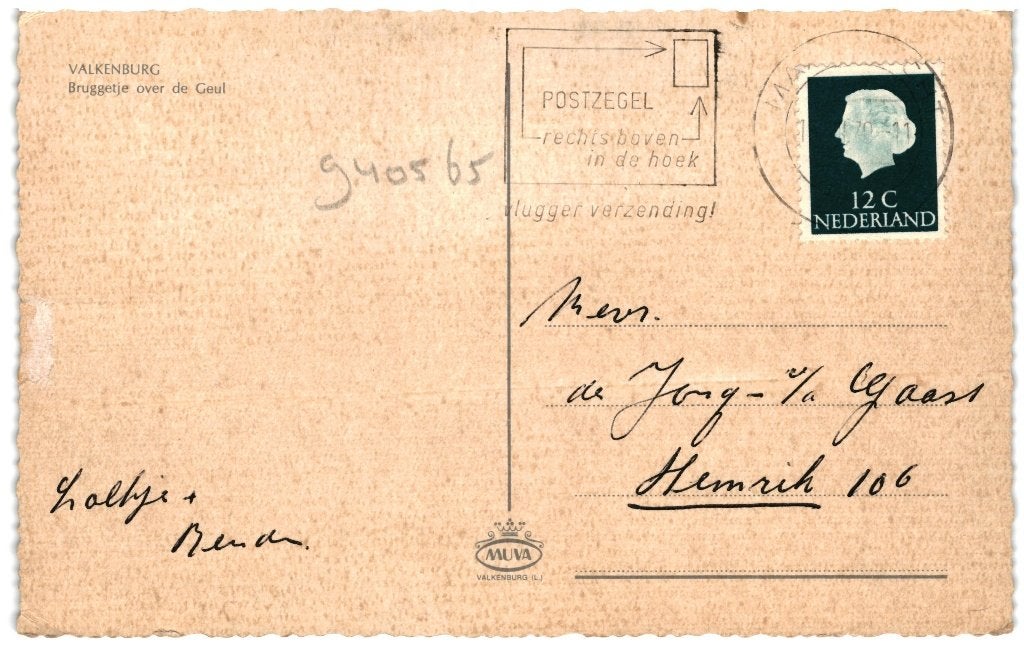 VALKENBURG
Bruggetje over de Geul
9405 65
POSTZEGEL
rechts boven
in de hoek
vlugger verzending!
12 C
NEDERLAND
Mevr.
de Jong - v/d Gaast
Hemrik 106
Loltje +
MUVA
VALKENBURG (L.)